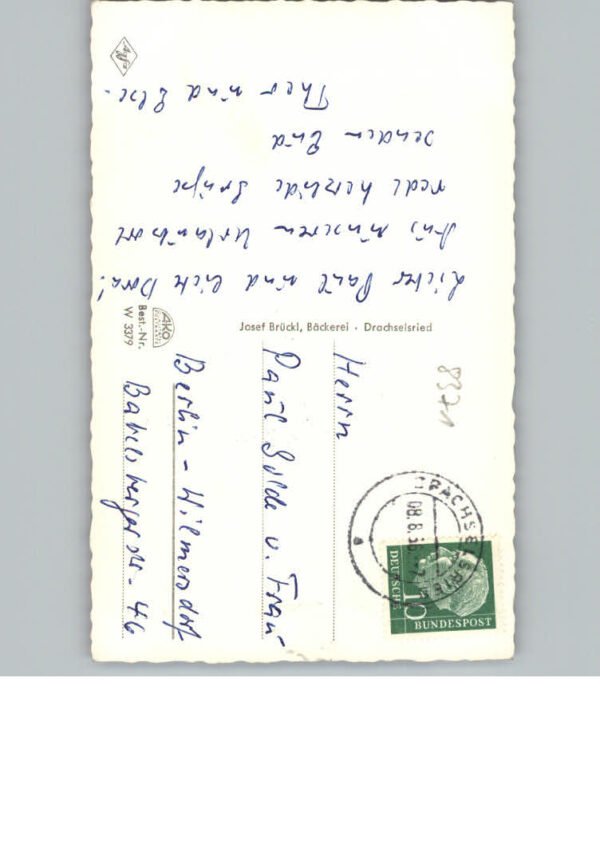 Agfa
Lieber Paul und liebe Dora!
Aus unseren Urlaubsort
recht herzliche Grüße
senden Euch
Theo und Else.
Josef Brückl, Bäckerei · Drachselsried
AKO
Best.-Nr.
W 3379
Herrn
Paul Golde u. Frau
Berlin-Wilmersdorf
Babelsbergerstr. 46
DRACHSELSRIED
08.8.56
a
DEUTSCHE
BUNDESPOST
10